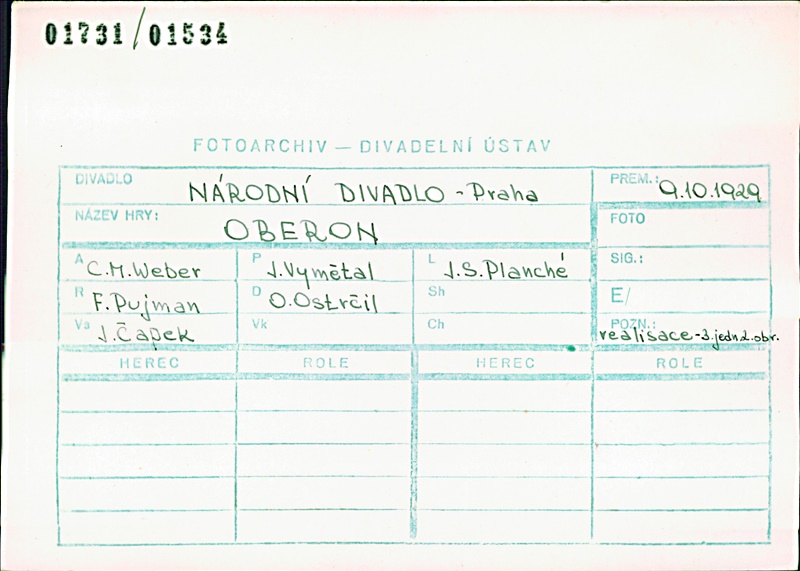 01731/01534
FOTOARCHIV — DIVADELNÍ ÚSTAV
DIVADLO NÁRODNÍ DIVADLO - Praha PREM.: 9.10.1929
NÁZEV HRY: OBERON FOTO
A C.M. Weber P J. Vymětal L J.S. Planché SIG.:
R F. Pujman D O. Ostrčil Sh E/
Va J. Čapek Vk Ch POZN.: realisace - 3. jedn. 2. obr.
HEREC ROLE HEREC ROLE